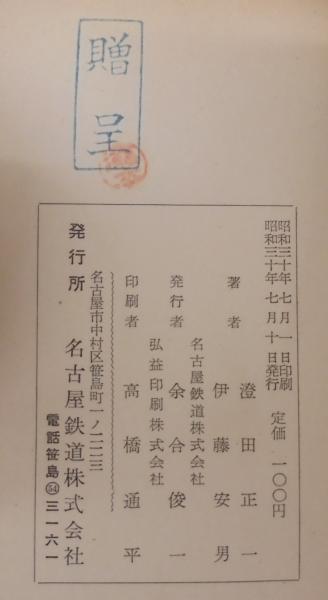 贈呈
昭和三十年七月一日印刷
昭和三十年七月十日発行
定価 一〇〇円
著者
澄田正一
伊藤安男
名古屋鉄道株式会社
発行者 余合俊一
弘益印刷株式会社
印刷者 高橋通平
名古屋市中村区笹島町一ノ二二三
発行所 名古屋鉄道株式会社
電話笹島(54)三一六一